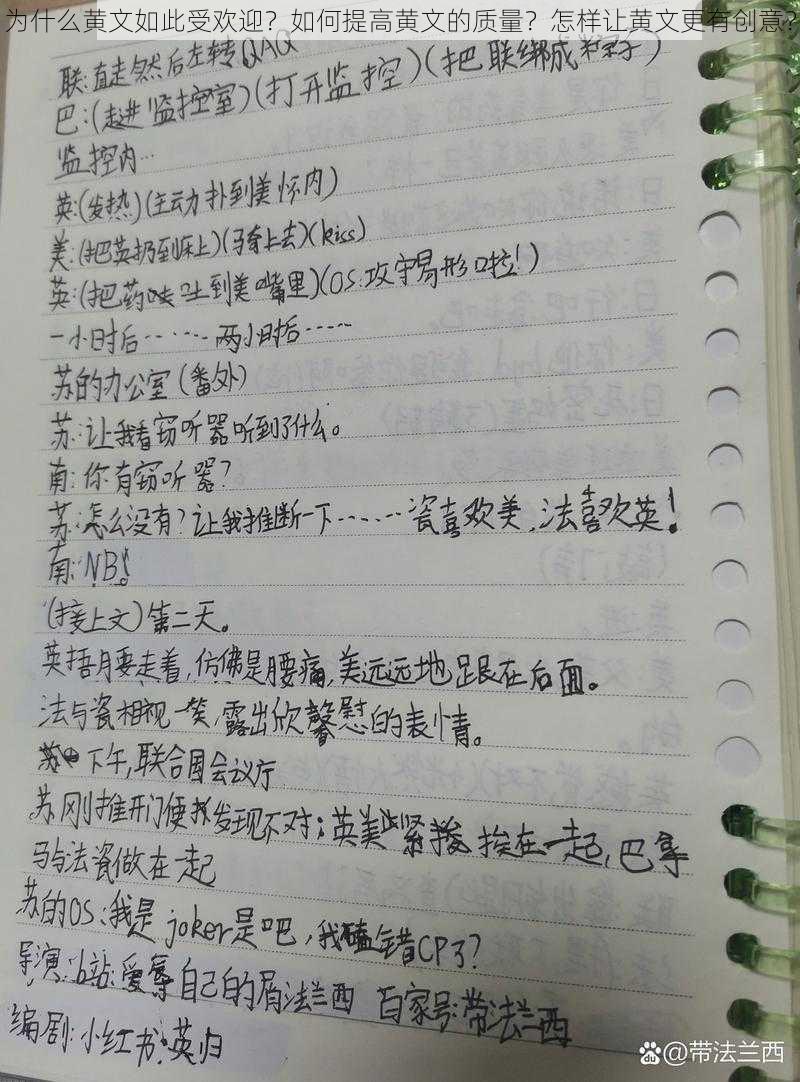 为什么黄文如此受欢迎？如何提高黄文的质量？怎样让黄文更有创意？
联:直走然后左转QAQ
巴:(走进监控室)(打开监控)(把联绑成粽子)
监控内…
英:(发热)(主动扑到美怀内)
美:(把英扔到床上)(骑上去)(kiss)
英:(把药哇吐到美嘴里)(OS:攻守易形啦!)
一小时后……两小时后……
苏的办公室(番外)
苏:让我看窃听器听到了什么。
南:你有窃听器?
苏:怎么没有?让我推断一下……瓷喜欢美,法喜欢英!
南:NB!
(接上文)第二天。
英捂腰走着,仿佛是腰痛,美远远地跟在后面。
法与瓷相视一笑,露出欣慰的表情。
下午,联合国会议厅
苏刚推开门便发现不对:英美紧挨在一起,巴拿
马与法瓷做在一起
苏的OS:我是joker是吧,我磕错CP了?
导演:b站:爱辱自己的屑法兰西 百家号:带法兰西
编剧:小红书:英归
@带法兰西